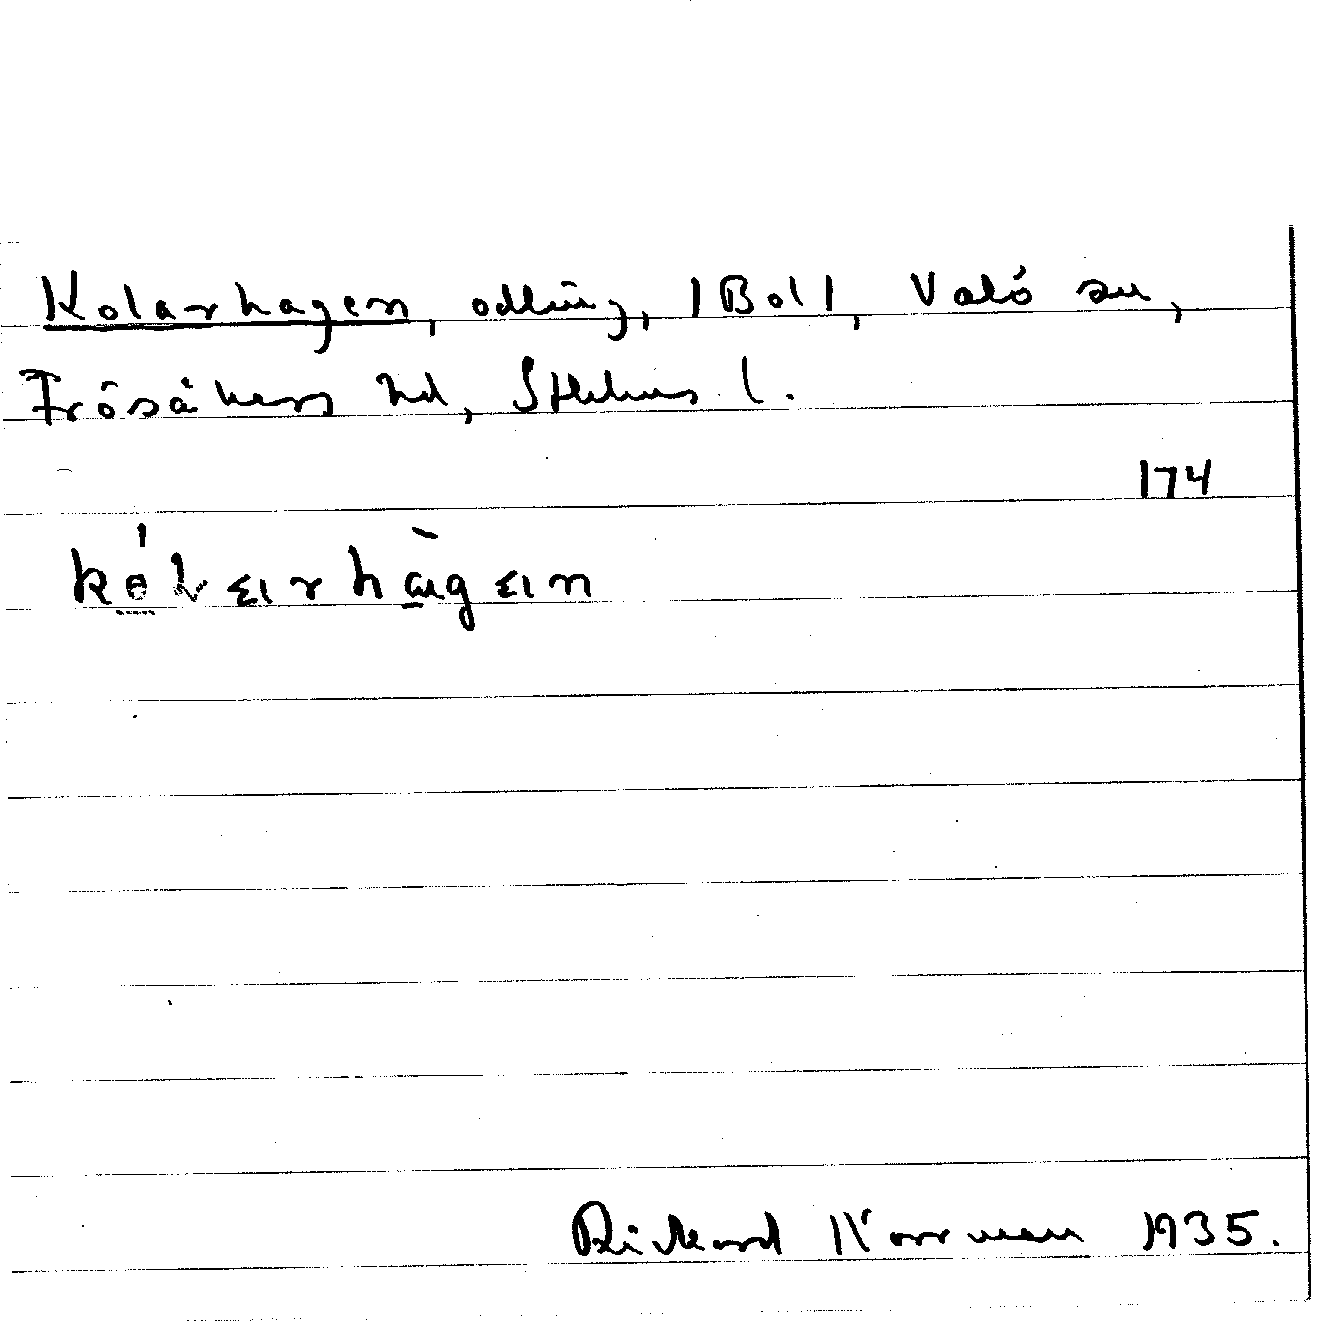 Kolarhagen, odling, |Bol|, Valö sn,
Frösåkers hd, Sthlms l.
174
Rickard Norrman 1935.